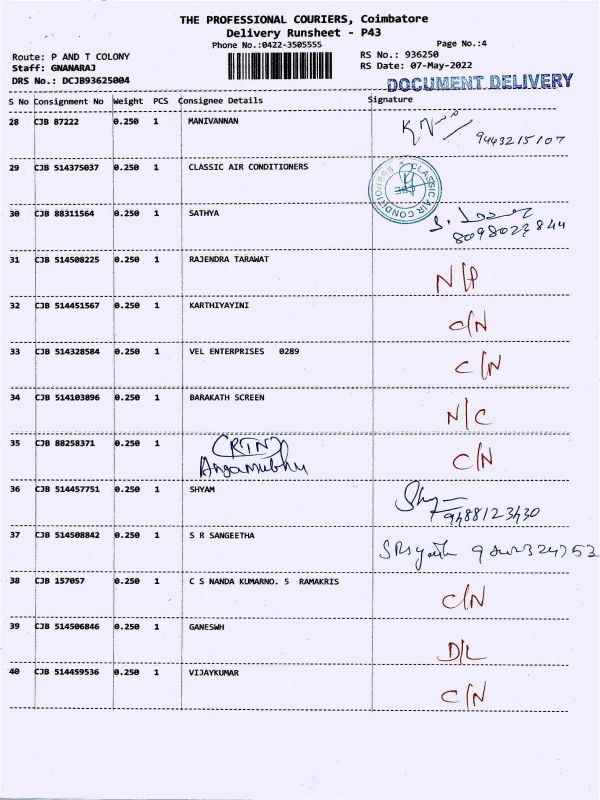 THE PROFESSIONAL COURIERS, Coimbatore
Delivery Runsheet - P43
Phone No.:0422-3505555 Page No.:4
Route: P AND T COLONY RS No.: 936250
Staff: GNANARAJ RS Date: 07-May-2022
DRS No.: DCJB93625004
DOCUMENT DELIVERY
S No Consignment No Weight PCS Consignee Details Signature
28 CJB 87222 0.250 1 MANIVANNAN
9443215107
29 CJB 514375037 0.250 1 CLASSIC AIR CONDITIONERS CLASSIC AIR CONDITIONERS
30 CJB 88311564 0.250 1 SATHYA
8098027844
31 CJB 514508225 0.250 1 RAJENDRA TARAWAT N/P
32 CJB 514451567 0.250 1 KARTHIYAYINI C/N
33 CJB 514328584 0.250 1 VEL ENTERPRISES 0289 C/N
34 CJB 514103896 0.250 1 BARAKATH SCREEN N/C
35 CJB 88258371 0.250 1 (RTN) C/N
36 CJB 514457751 0.250 1 SHYAM
9488123430
37 CJB 514508842 0.250 1 S R SANGEETHA
38 CJB 157057 0.250 1 C S NANDA KUMARNO. 5 RAMAKRIS C/N
39 CJB 514506846 0.250 1 GANESWH D/L
40 CJB 514459536 0.250 1 VIJAYKUMAR C/N